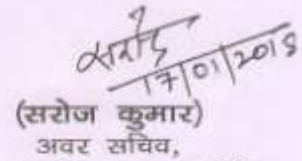 सरोज
17/01/2018
(सरोज कुमार)
अवर सचिव,